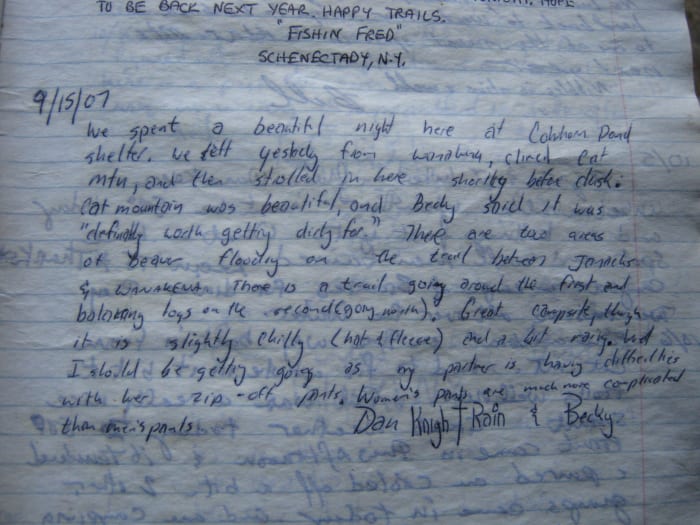 TO BE BACK NEXT YEAR. HAPPY TRAILS.
"FISHIN FRED"
SCHENECTADY, N.Y.
9/15/07
We spent a beautiful night here at Pond
shelter. We left from Wanakena, climed Cat
mtn, and then strolled in here shortly before dusk.
Cat mountain was beautiful, and Becky said it was
"definatly worth getting dirty for." There are two areas
of beaver flooding on the trail between Janacks
& WANAKENA. There is a trail going around the first and
balancing logs on the second (going north). Great campsite, though
it is slightly chilly (hat & fleece) and a bit rainy. Well
I should be getting going as my partner is having difficulties
with her zip-off pants. Women's pants are much more complicated
than men's pants.
Dan Knight Rain & Becky